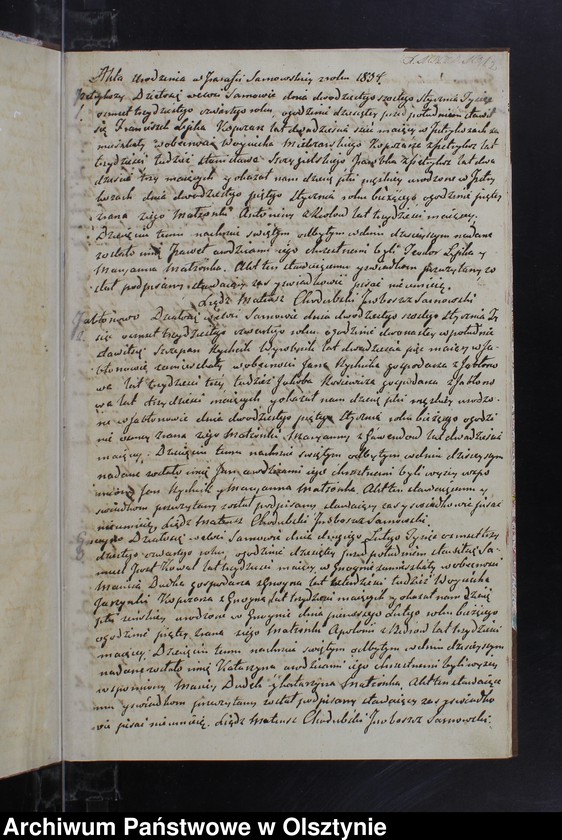 Akta Urodzenia w Parafii Sarnowskiey z roku 1834.
Działo się we wsi Sarnowie dnia dwudziestego szóstego Stycznia Tysiąc
ośmset trzydziestego czwartego roku, o godzinie dziesiątey przed południem stawił
się Franciszek Lipka lat dwadzieścia maiący w
zamieszkały w obecności Woyciecha lat
trzydzieści tudzież Stanisława z lat dwa
dzieścia trzy maiących y okazał nam dziecię płci męskiey urodzone w
dnia dwudziestego piątego Stycznia roku bieżącego o godzinie piątey
zrana z iego Małżonki Antoniny lat trzydzieści maiącey.
Dziecięciu temu na chrzcie świętym odbytym w dniu dzisieyszym nadane
zostało imię Paweł a rodzicami iego chrzestnemi byli Teodor Lipka y
Maryanna Małżonka. Akt ten stawaiącemu y świadkom przeczytany zo
stał podpisany stawaiący zaś y świadkowie pisać nieumieią.
Xiądz Mateusz Chodubski Proboszcz Sarnowski
Jabłonowo Działo się we wsi Sarnowie dnia dwudziestego szóstego Stycznia Ty
siąc ośmset trzydziestego czwartego roku o godzinie dwunastey w południe
stawił się Szczepan Rychcik Wyrobnik lat dwadzieścia pięć maiący w Ja
błonowie zamieszkały w obecności Jana Rychcika gospodarza z Jabłono
wa lat trzydzieści trzy tudzież Jakóba gospodarza z Jabłono
wa lat trzydzieści maiących y okazał nam dziecię płci męzkiey urodzo
ne w Jabłonowie dnia dwudziestego piątego Stycznia roku bieżącego o godzi
nie ósmey zrana z iego Małżonki Maryanny z lat dwadzieścia
maiącey. Dziecięciu temu na chrzcie świętym odbytym w dniu dzisieyszym
nadane zostało imię Jan a rodzicami iego chrzestnemi byli wyżey wspo
mniony Jan Rychcik y Maryanna Małżonka. Akt ten stawaiącemu y
świadkom przeczytany został podpisany stawaiący zaś y świadkowie pisać
nieumieią. Xiądz Mateusz Chodubski Proboszcz Sarnowski.
Działo się we wsi Sarnowie dnia drugiego Lutego Tysiąc ośmset trzy
dziestego czwartego roku, o godzinie dziesiątey przed południem stawił się Sa
muel Józef Kowal lat trzydzieści maiący w Gnoynie zamieszkały w obecności
Macieia Dudka gospodarza z Gnoyna lat czterdzieści tudzież Woyciecha
z Gnoyna lat trzydzieści maiących y okazał nam dziecię
płci żeńskiey urodzone w Gnoynie dnia pierwszego Lutego roku bieżącego
o godzinie piątey zrana z iego Małżonki Apolonii lat trzydzieści
maiącey. Dziecięciu temu na chrzcie świętym odbytym w dniu dzisieyszym
nadane zostało imię Katarzyna a rodzicami iego chrzestnemi byli wyżey
wspomniony Maciey Dudek y Katarzyna Małżonka. Akt ten stawaiące
mu y świadkom przeczytany został podpisany stawaiący zaś y świadko
wie pisać nieumieią. Xiądz Mateusz Chodubski Proboszcz Sarnowski.
Archiwum Państwowe w Olsztynie